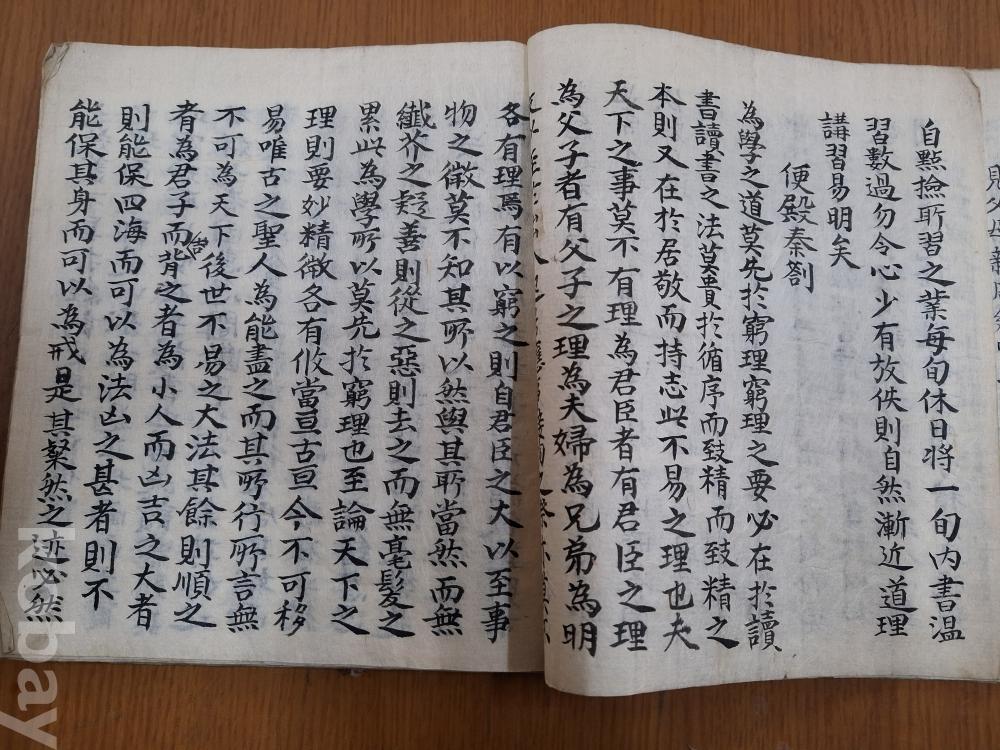 自點撿所習之業每旬休日將一旬內書温
習數過勿令心少有放佚則自然漸近道理
講習易明矣
便殿奏劄
為學之道莫先於窮理窮理之要必在於讀
書讀書之法莫貴於循序而致精而致精之
本則又在於居敬而持志此不易之理也夫
天下之事莫不有理為君臣者有君臣之理
為父子者有父子之理為夫婦為兄弟為明
各有理焉有以窮之則自君臣之大以至事
物之微莫不知其所以然與其所當然而無
纖芥之疑善則從之惡則去之而無毫髮之
累此為學所以莫先於窮理也至論天下之
理則要妙精微各有攸當亘古亘今不可移
易唯古之聖人為能盡之而其所行所言無
不可為天下後世不易之大法其餘則順之
者為君子而背之者為小人而凶吉之大者
則能保四海而可以為法凶之甚者則不
能保其身而可以為戒是其粲然之迹必然
kobay